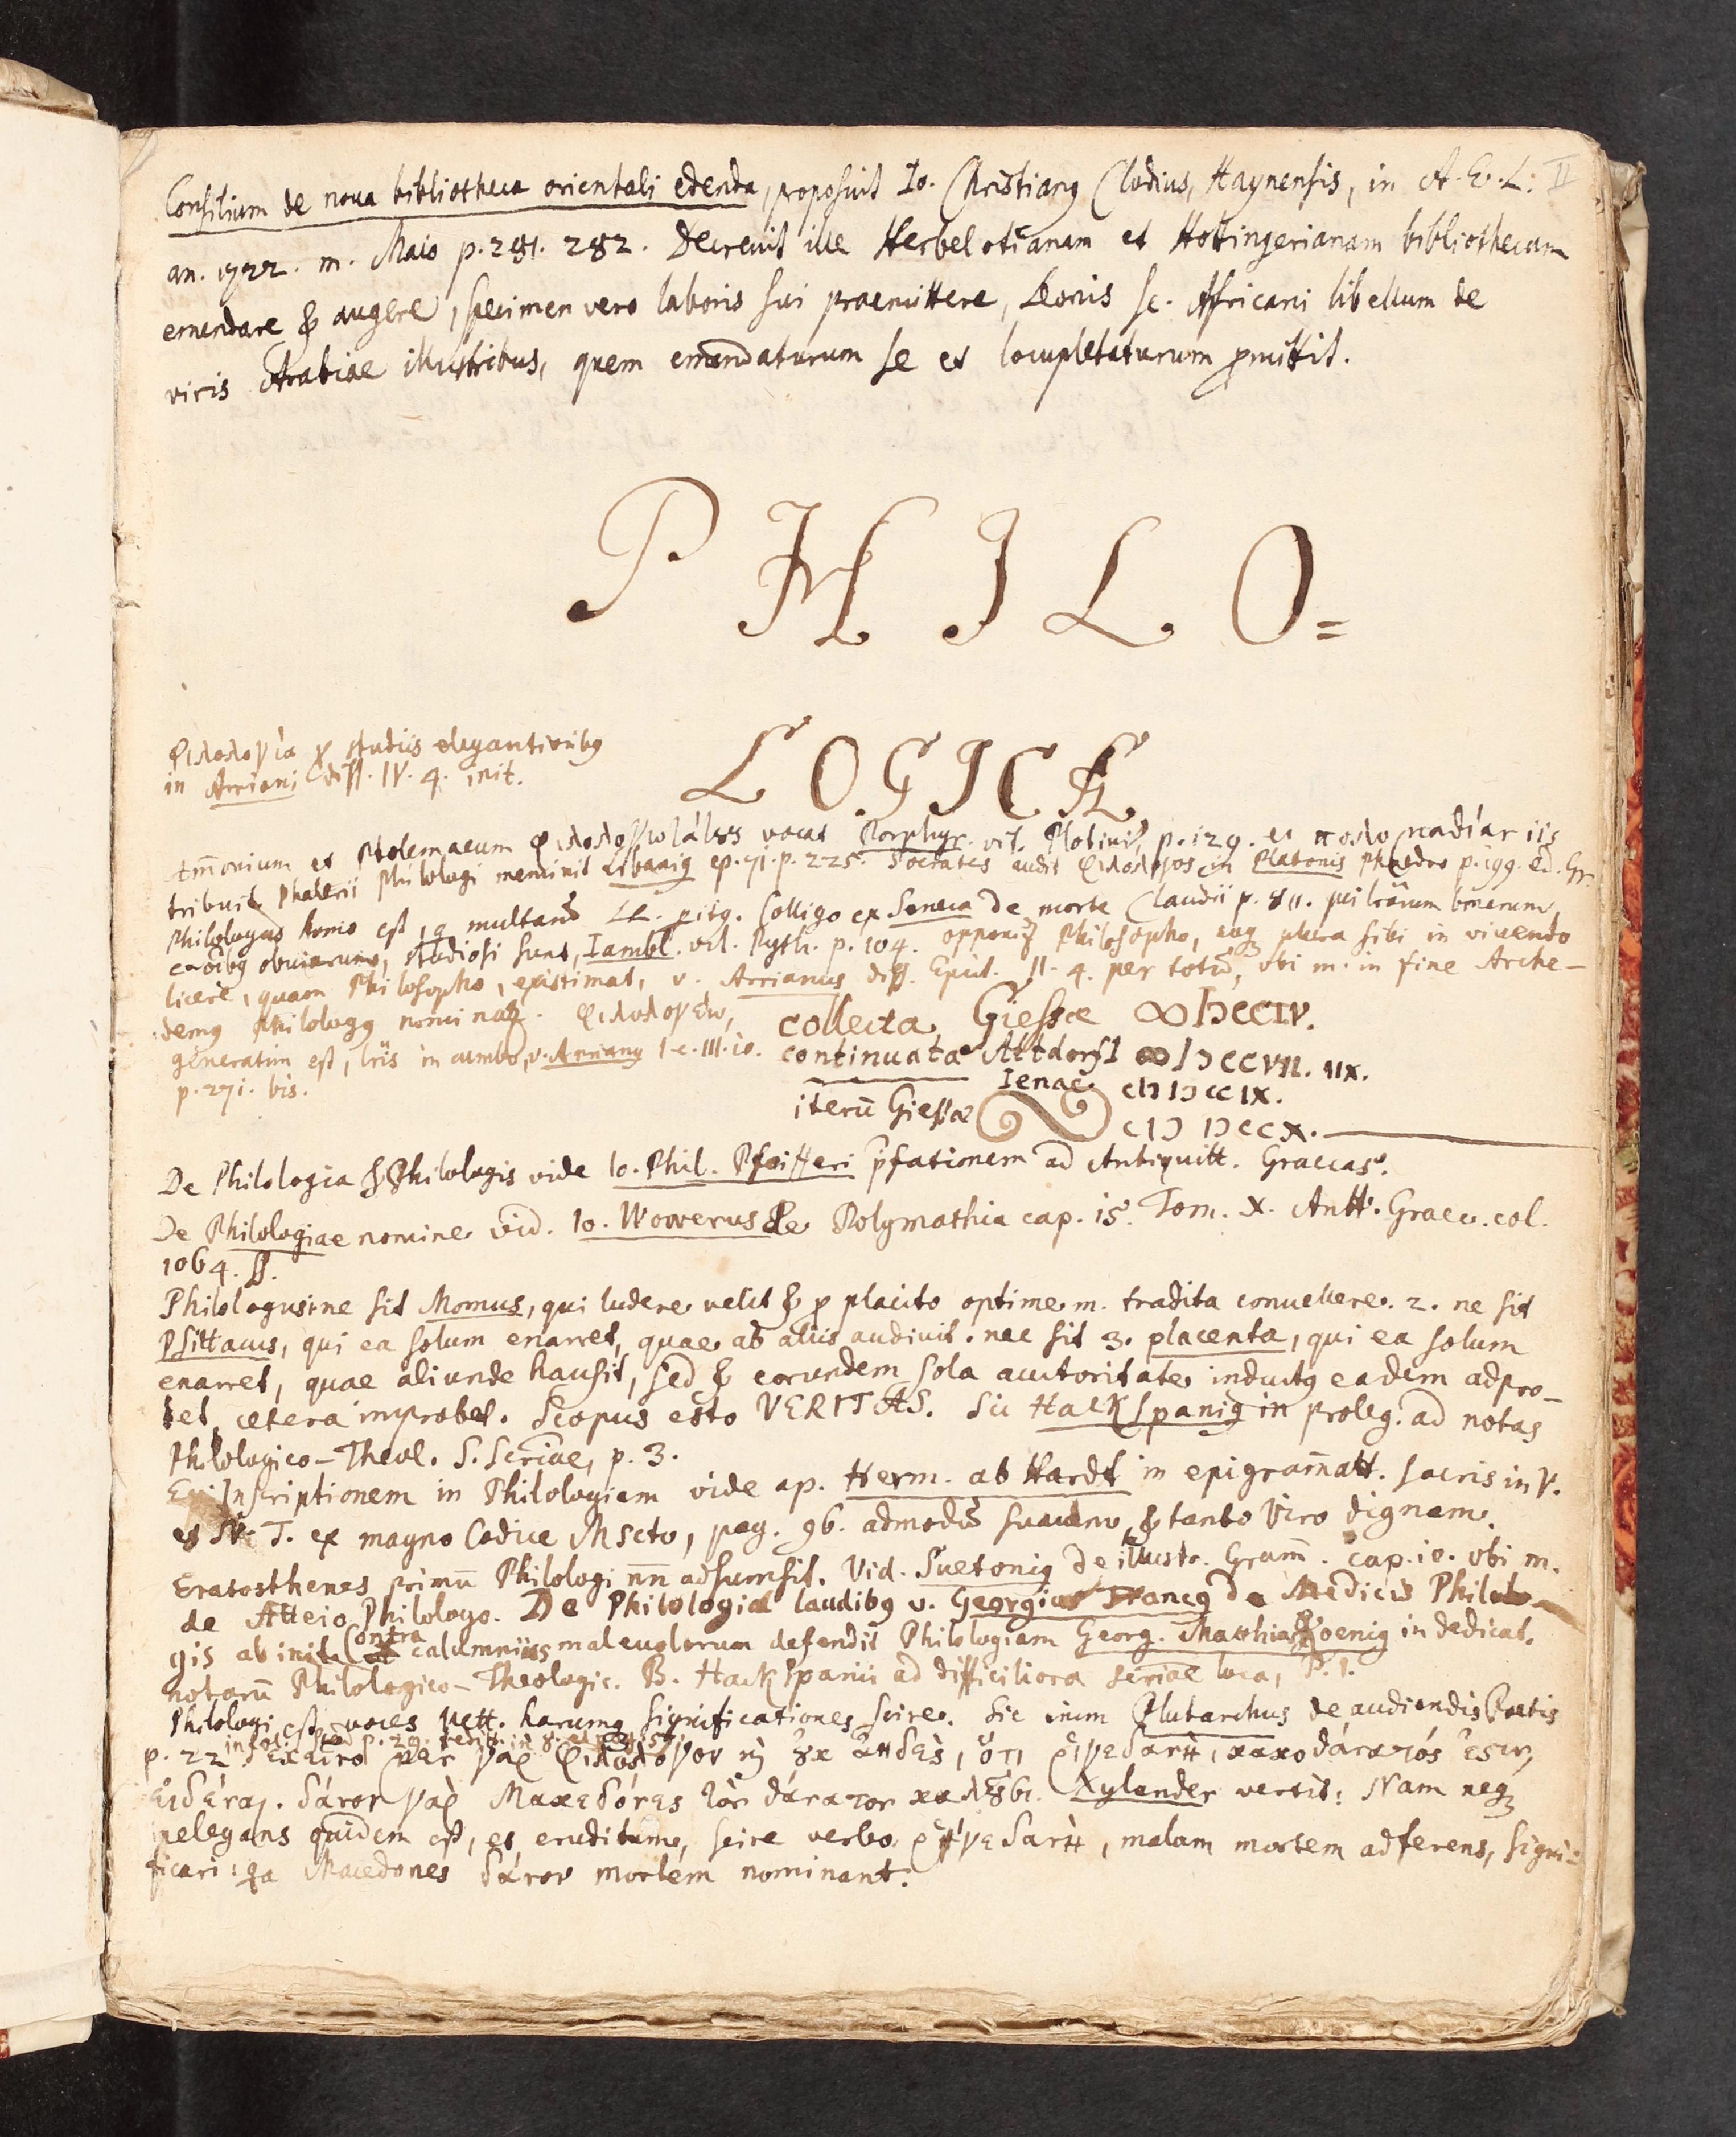 Consilium de noua bibliotheca orientali edenda, proposuit Io. Christianꝰ Clodius, Haynensis, in A. E. L. II
an. 1722. m. Maio p. 281. 282. Decreuit ille Herbelotianam et Hottingerianam bibliothecam
emendare & augere, specimen vero laboris sui praemittere, Leonis sc. Africani libellum de
viris Arabiae illustribus, quem emendaturum se et locupletaturum ꝓmittit.
PHILO=
LOGICA
Φιλολογία ꝓ studiis elegantioribꝰ
in Arriani diss. IV. 4. init.
Am̄onium et Ptolemaeum φιλολογωτάτους vocat Porphyr. vit. Plotini, p. 129. et iis
tribuit. Phalerii Philologi meminit Libaniꝰ ep. 71. p. 225. Socrates audit φιλόλογος in Platonis Phaedro p. 199. ed. Gr.
Philologus homo est, multarū colligo ex Seneca de morte Claudii p. 811.
obuiarum, studiosi sunt, Iambl. vit. Pyth. p. 104. opponit Philosopho, plura sibi in viuendo
licere, quam Philosopho, existimat, v. Arrianus diss. Epict. II. 4. per totū, vbi m. in fine Arche-
demꝰ Philologꝰ nominat. Φιλολογέω,
generatim est, v. Arrianꝰ l. c. III. 10.
p. 271. bis.
collecta Giessae ∞ IↃCCIV.
continuata Altdorfi ∞ IↃCCVII. IIX.
Ienae CIↃ IↃCCIX.
iterū Giessae CIↃ IↃCCX.
De Philologia & Philologis vide Io. Phil. Pfeifferi p̄fationem ad Antiquitt. Graecas.
De Philologiae nomine vid. Io. Wowerus de Polymathia cap. 15. Tom. X. Antt. Graec. col.
1064.
Philologus 1. ne sit Momus, qui ludere velit & ꝓ placito optime m. tradita conuellere. 2. ne sit
Psittacus, qui ea solum enarret, quae ab aliis audiuit. nec sit 3. placenta, qui ea solum
enarret, quae aliunde hausit, sed & eorundem sola auctoritate inductꝰ eadem adpro-
bet, cetera improbet. Scopus esto VERITAS. Sic Hackspaniꝰ in proleg. ad notas
Philologico-Theol. S. Scr̄iae, p. 3.
Inscriptionem in Philologiam vide ap. Herm. ab Hardt in epigram̄att. sacris in V.
et N. T. ex magno Codice Mscto, pag. 96. admodū suauem, & tanto Viro dignam.
Eratosthenes primū Philologi nn̄ adsumsit. Vid. Suetoniꝰ de illustr. Gram̄. cap. 10. vbi m.
de Atteio Philologo. De Philologiae laudibꝰ v. Georgius Francꝰ de Medicis Philolo-
gis ab init. Contra calumniis maleuolorum defendit Philologiam Georg. Matthias Koenig in dedicat.
notarū Philologico-Theologic. B. Hackspanii ad difficiliora scr̄iae loca, P. I.
Philologi est, voces vett. harumq; significationes scire. Sic enim Plutarchus de audiendis Poetis
p. 22 Ἐκεῖνο μὲν γὰρ φιλόλογον κ̀ οὐκ ἀηδὲς, ὅτι ῥιγεδανὴ, κακοθάνατός ἐστιν,
εἰδέναι. δάνον γὰρ Μακεδόνες τὸν θάνατον καλοῦσι. Xylander vertit: Nam neq;
inelegans quidem est, et eruditum, scire verbo ῥιγεδανὴ, malam mortem adferens, signi-
ficari: qa Macedones δάνον mortem nominant.